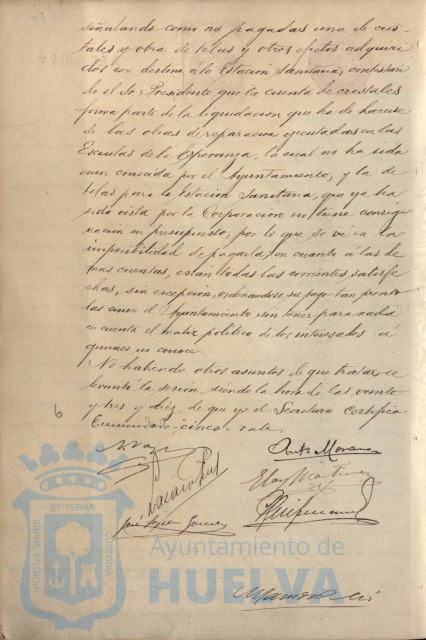 señalando como no pagadas una de cris-
tales y obra de telas y otros efectos adquiri-
dos con destino á la Estación Sanitaria, contestan-
do el Sr. Presidente que la cuenta de cristales
forma parte de la liquidación que ha de hacerse
de las obras de reparación ejecutadas en las
Escuelas de la Esperanza, la cual no ha sido
aun conocida por el Ayuntamiento, y la de
telas para la Estación Sanitaria, que ya ha
sido vista por la Corporación no tiene consig-
nación en presupuesto, por lo que se vé en la
imposibilidad de pagarla; en cuanto á las de
mas cuentas, están todas las corrientes satisfe
chas, sin excepción, ordenandose su pago tan pronto
las conoce el Ayuntamiento sin tener para nada
en cuenta el matiz político de los interesados á
quienes ni conoce
No habiendo otros asuntos de que tratar se
levantó la sesión, siendo la hora de las veinte
y tres y diez de que yo el Secretario Certifico
Enmendado-cinco-vale
6
Antº Moreno
Eloy Martinez
José López Gómez
PORTUS MARIS ET TERRÆ CUSTODIA
Ayuntamiento de
HUELVA